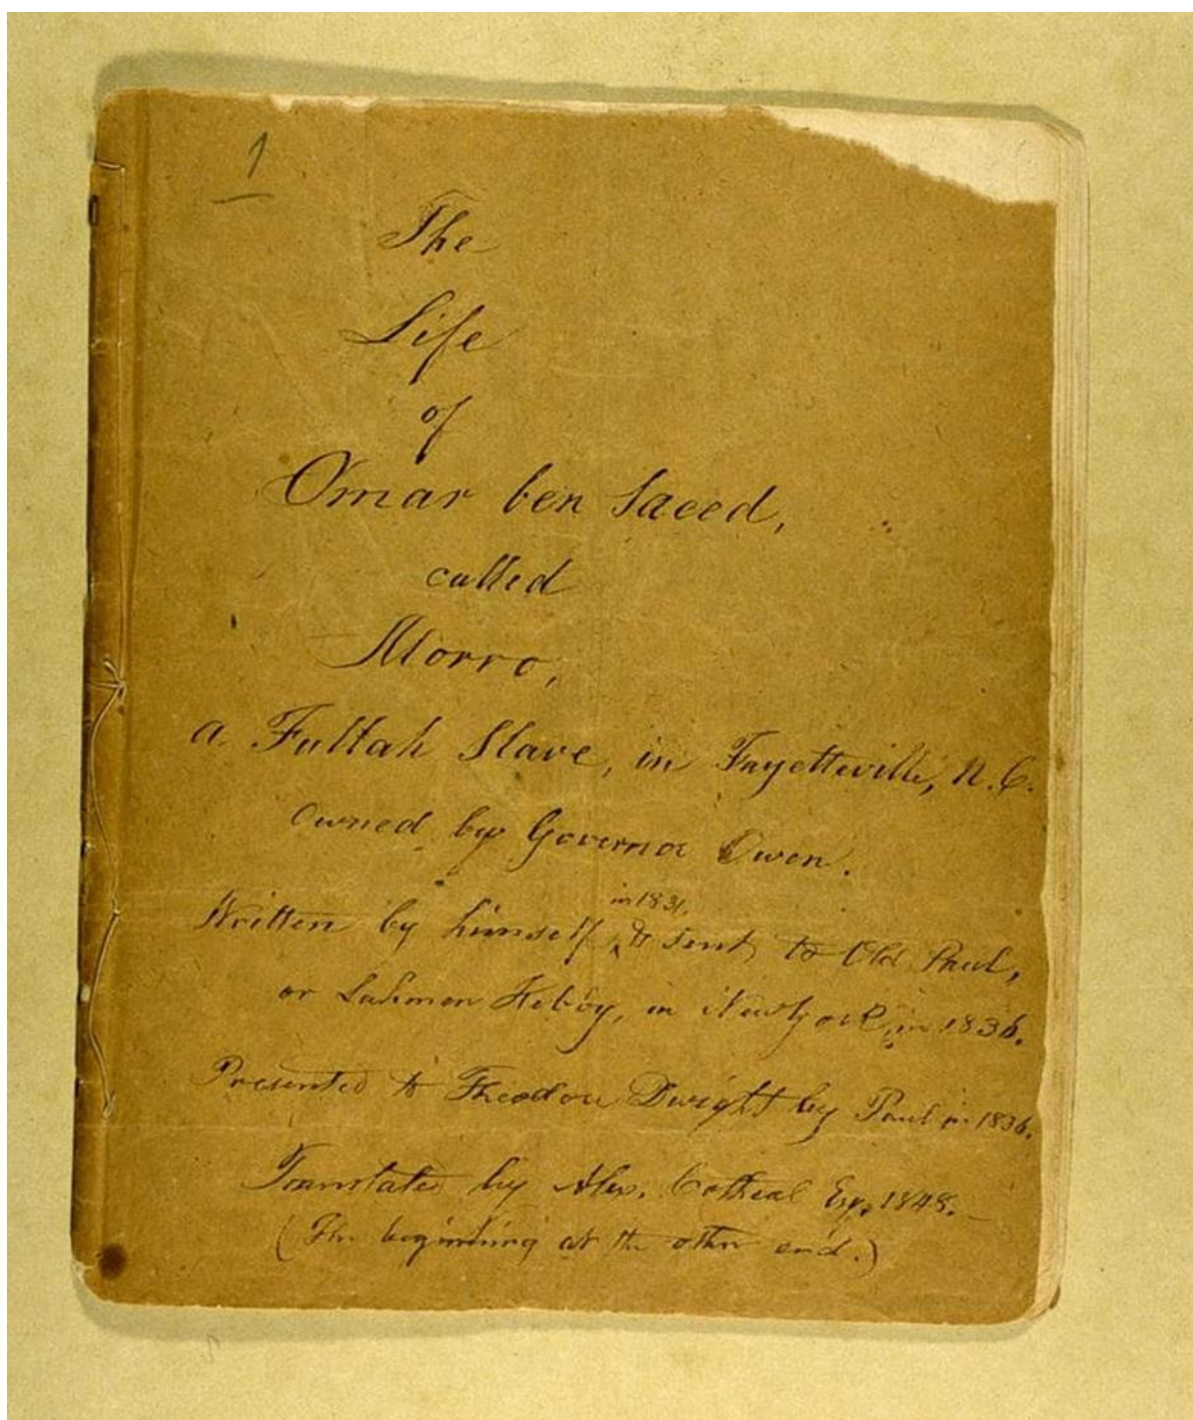 1
The
Life
of
Omar ben Saeed,
called
Morro,
a Fullah Slave, in Fayetteville, N.C.
Owned by Governor Owen.
Written by himself in 1831, & sent to Old Paul,
or Lahmen Kebby, in New York, in 1836.
Presented to Theodore Dwight by Paul in 1836.
Translated by Alex. Cotheal Esq. 1848.
(The beginning at the other end.)